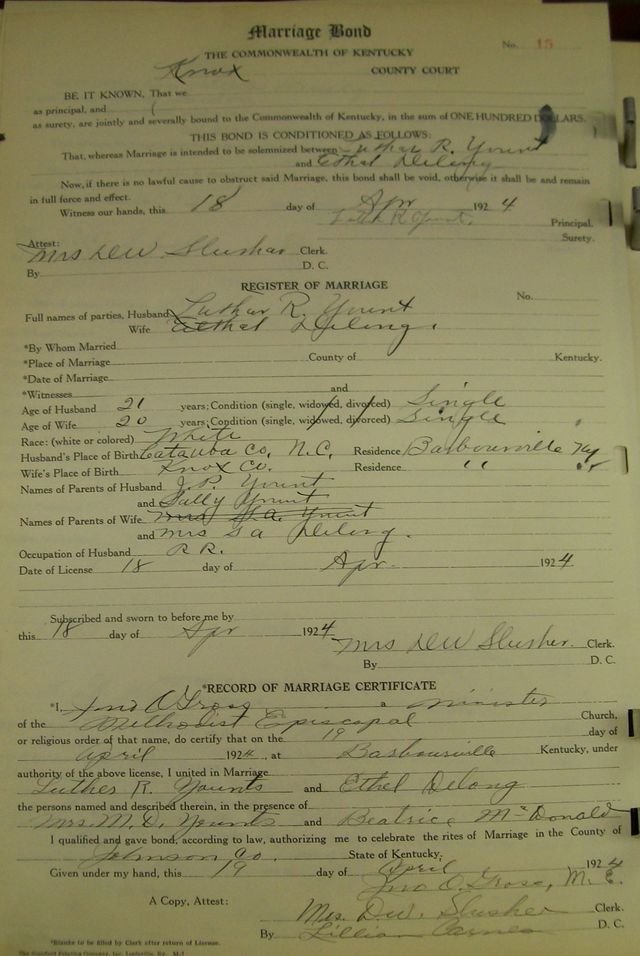 Marriage Bond
No. 15
THE COMMONWEALTH OF KENTUCKY
Knox COUNTY COURT
BE IT KNOWN, That we
as principal, and
as surety, are jointly and severally bound to the Commonwealth of Kentucky, in the sum of ONE HUNDRED DOLLARS.
THIS BOND IS CONDITIONED AS FOLLOWS:
That, whereas Marriage is intended to be solemnized between Luthar R. Yount
and Ethal Deling
Now, if there is no lawful cause to obstruct said Marriage, this bond shall be void, otherwise it shall be and remain
in full force and effect.
Witness our hands, this 18 day of Apr 1924
Luth R Yount. Principal.
Surety.
Attest:
Mrs DW. Slusher Clerk.
By D. C.
REGISTER OF MARRIAGE
No.
Full names of parties, Husband Luthar R. Yount
Wife Ethal Deling.
*By Whom Married
*Place of Marriage County of Kentucky.
*Date of Marriage
*Witnesses and
Age of Husband 21 years; Condition (single, widowed, divorced) Single
Age of Wife 20 years; Condition (single, widowed, divorced) Single
Race: (white or colored) White
Husband's Place of Birth Catauba Co, N.C. Residence Barbourville Ky
Wife's Place of Birth Knox Co. Residence " "
Names of Parents of Husband J. P. Yount
and Sally Yount
Names of Parents of Wife Mrs G. a. Yount
and Mrs G a Deling.
Occupation of Husband R R.
Date of License 18 day of Apr 1924
Subscribed and sworn to before me by
this 18 day of Apr 1924
Mrs DW Slusher Clerk.
By D. C.
*RECORD OF MARRIAGE CERTIFICATE
*I, Jno O. Gross a minister
of the Methodist Episcopal Church,
or religious order of that name, do certify that on the 19 day of
April 1924, at Barbourville Kentucky, under
authority of the above license, I united in Marriage
Luther R. Younts and Ethel Delong
the persons named and described therein, in the presence of
Mrs. M. D. Younts and Beatrice McDonald
I qualified and gave bond, according to law, authorizing me to celebrate the rites of Marriage in the County of
Johnson Co. State of Kentucky.
Given under my hand, this 19 day of April 1924
Jno O. Gross, M. E.
A Copy, Attest: Mrs. D.W. Slusher Clerk.
By Lillian D. C.
*Blanks to be filled by Clerk after return of License.